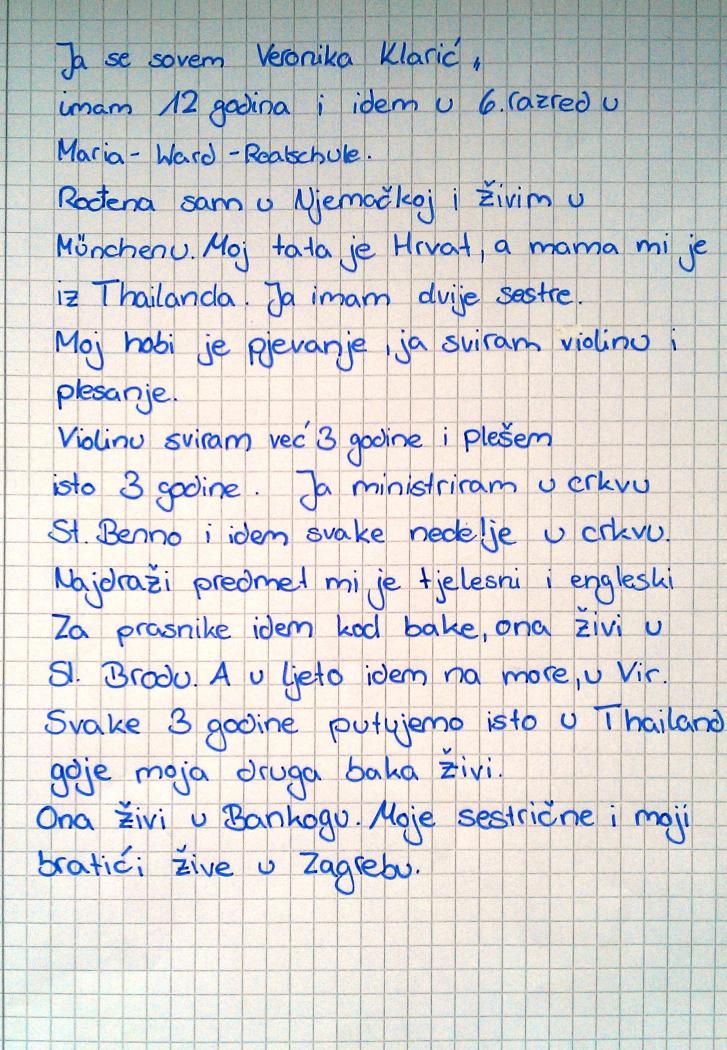 Ja se sovem Veronika Klarić,
imam 12 godina i idem u 6. razred u
Maria-Ward-Realschule.
Rođena sam u Njemačkoj i živim u
Münchenu. Moj tata je Hrvat, a mama mi je
iz Thailanda. Ja imam dvije sestre.
Moj hobi je pjevanje, ja sviram violinu i
plesanje.
Violinu sviram već 3 godine i plešem
isto 3 godine. Ja ministriram u crkvu
St. Benno i idem svake nedelje u crkvu.
Najdraži predmet mi je tjelesni i engleski
Za prasnike idem kod bake, ona živi u
Sl. Brodu. A u ljeto idem na more, u Vir.
Svake 3 godine putujemo isto u Thailand
gdje moja druga baka živi.
Ona živi u Bankogu. Moje sestrične i moji
bratići žive u Zagrebu.